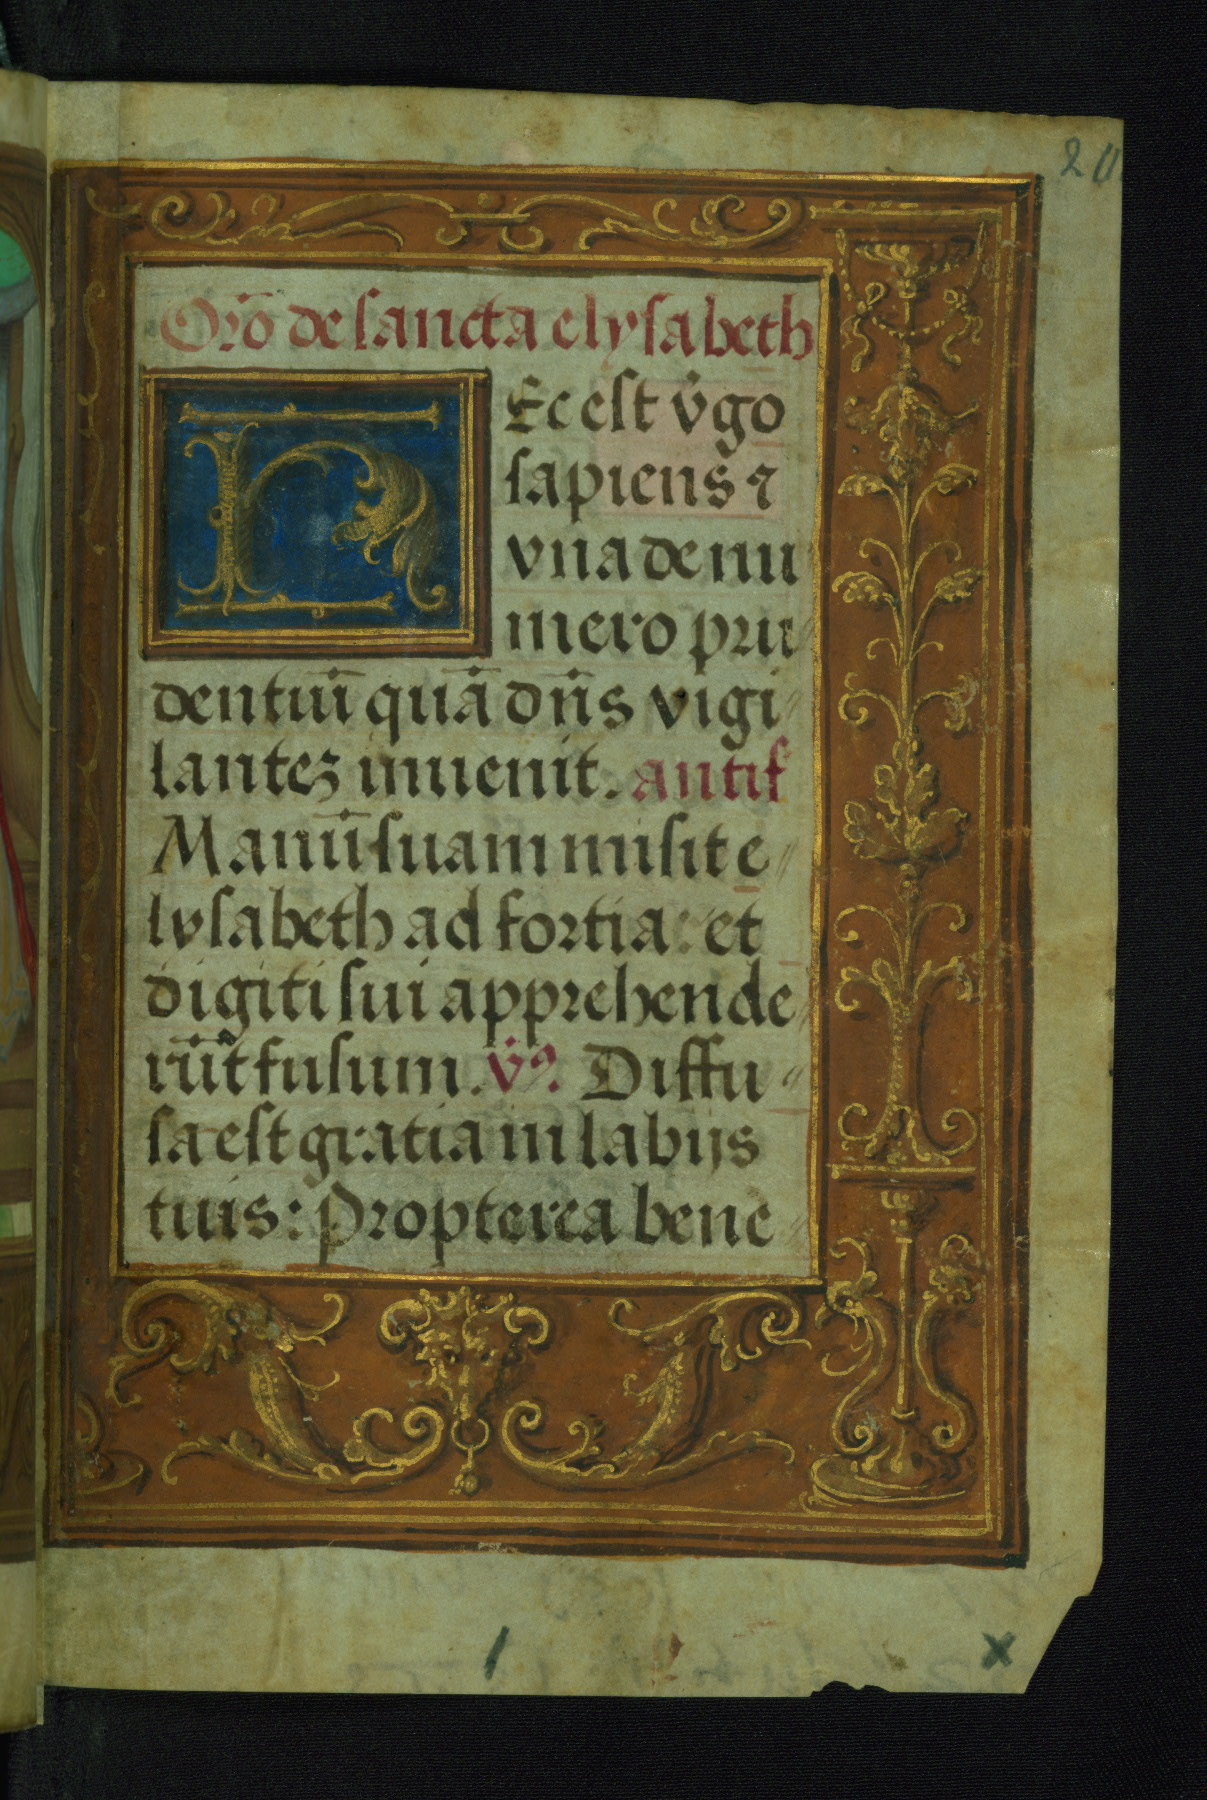 20
Orō de sancta elysabeth
HEc est v̄go
sapiens ⁊
vna de nu
mero pru
dentuū quā dn̄s vigi
lantez inuenit. antif
Manū suam misit e
lysabeth ad fortia: et
digiti sui apprehende
rūt fusum. v̄ꝰ. Diffu
sa est gratia in labijs
tuis: Propterea bene
x